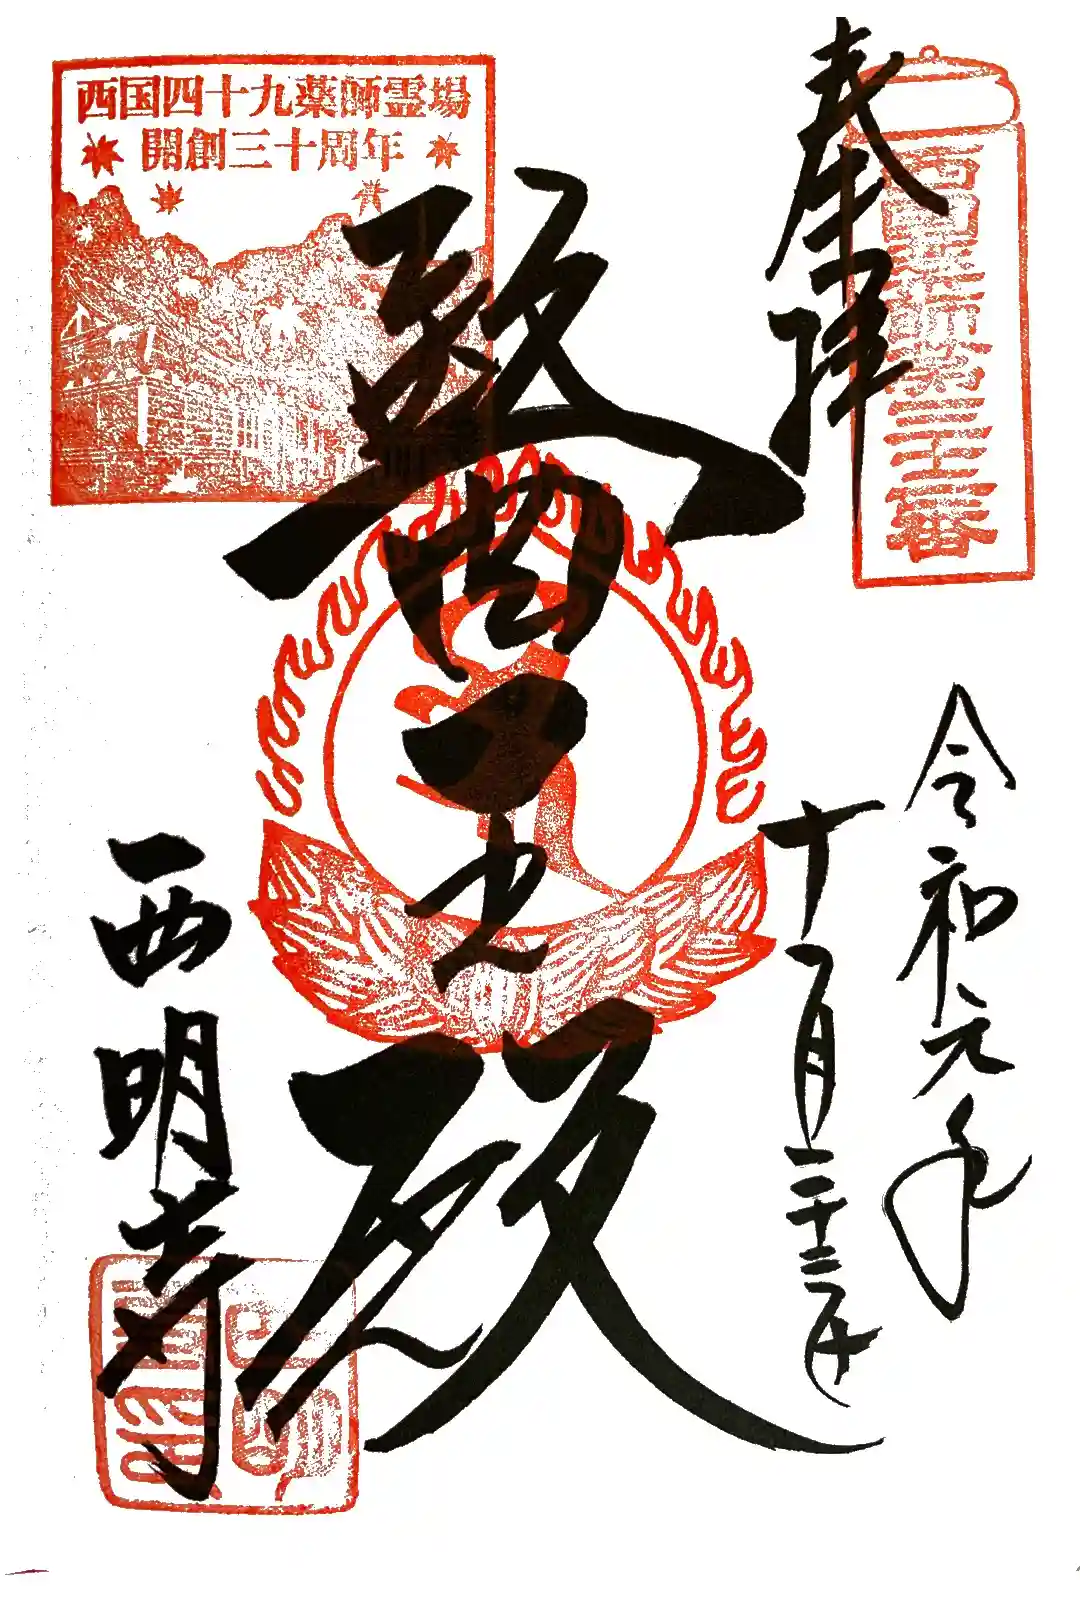 奉拝
西国薬師第三十二番
令和元年
十月二十二日
醫王殿
西国四十九薬師霊場
開創三十周年
西明寺